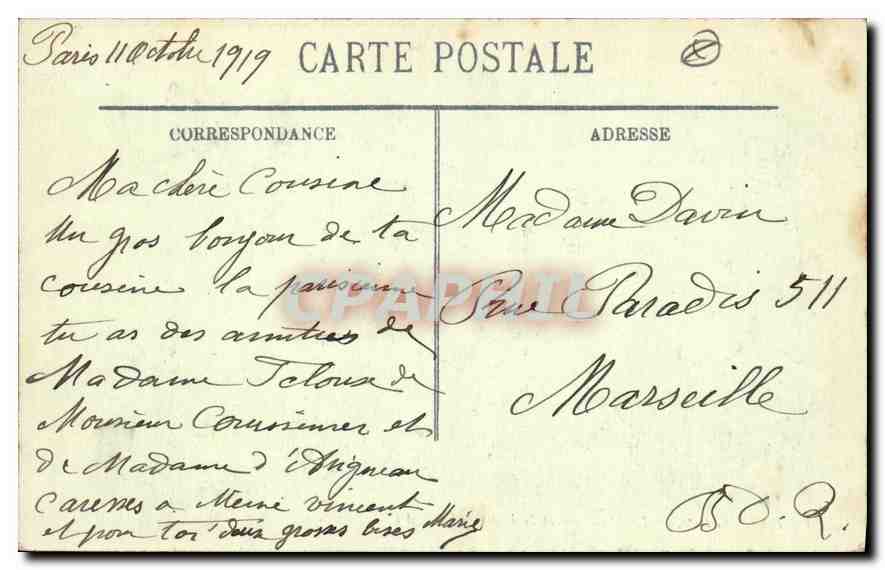 Paris 11 Octobre 1919
CARTE POSTALE
CORRESPONDANCE
Ma chère Cousine
Un gros bonjour de ta
cousine la parisienne
tu as des amitiés de
Madame de
Monsieur et
de Madame d'
Caresses a Vincent
et pour toi deux grosses bises Marie
ADRESSE
Madame Davin
Rue Paradis 511
Marseille
B. D. R.
CPAPHIL